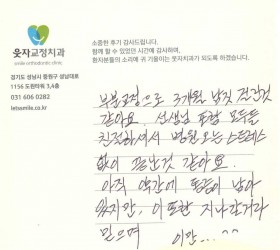 웃자교정치과
smile orthodontic clinic
경기도 성남시 중원구 성남대로
1156 도원타워 3,4층
031 606 0282
letssmile.co.kr
소중한 후기 감사드립니다.
함께 할 수 있었던 시간에 감사하며,
환자분들의 소리에 귀 기울이는 웃자교정치과가 되도록 하겠습니다.
부분교정으로 3개월 남짓 걸린것
같아요. 선생님 포함 모두들
친절하셔서 병원오는 스트레스
없이 끝난것 같아요.
아직 약간에 통증이 남아
있지만, 이또한 지나갈거라
믿으며 이만...^^